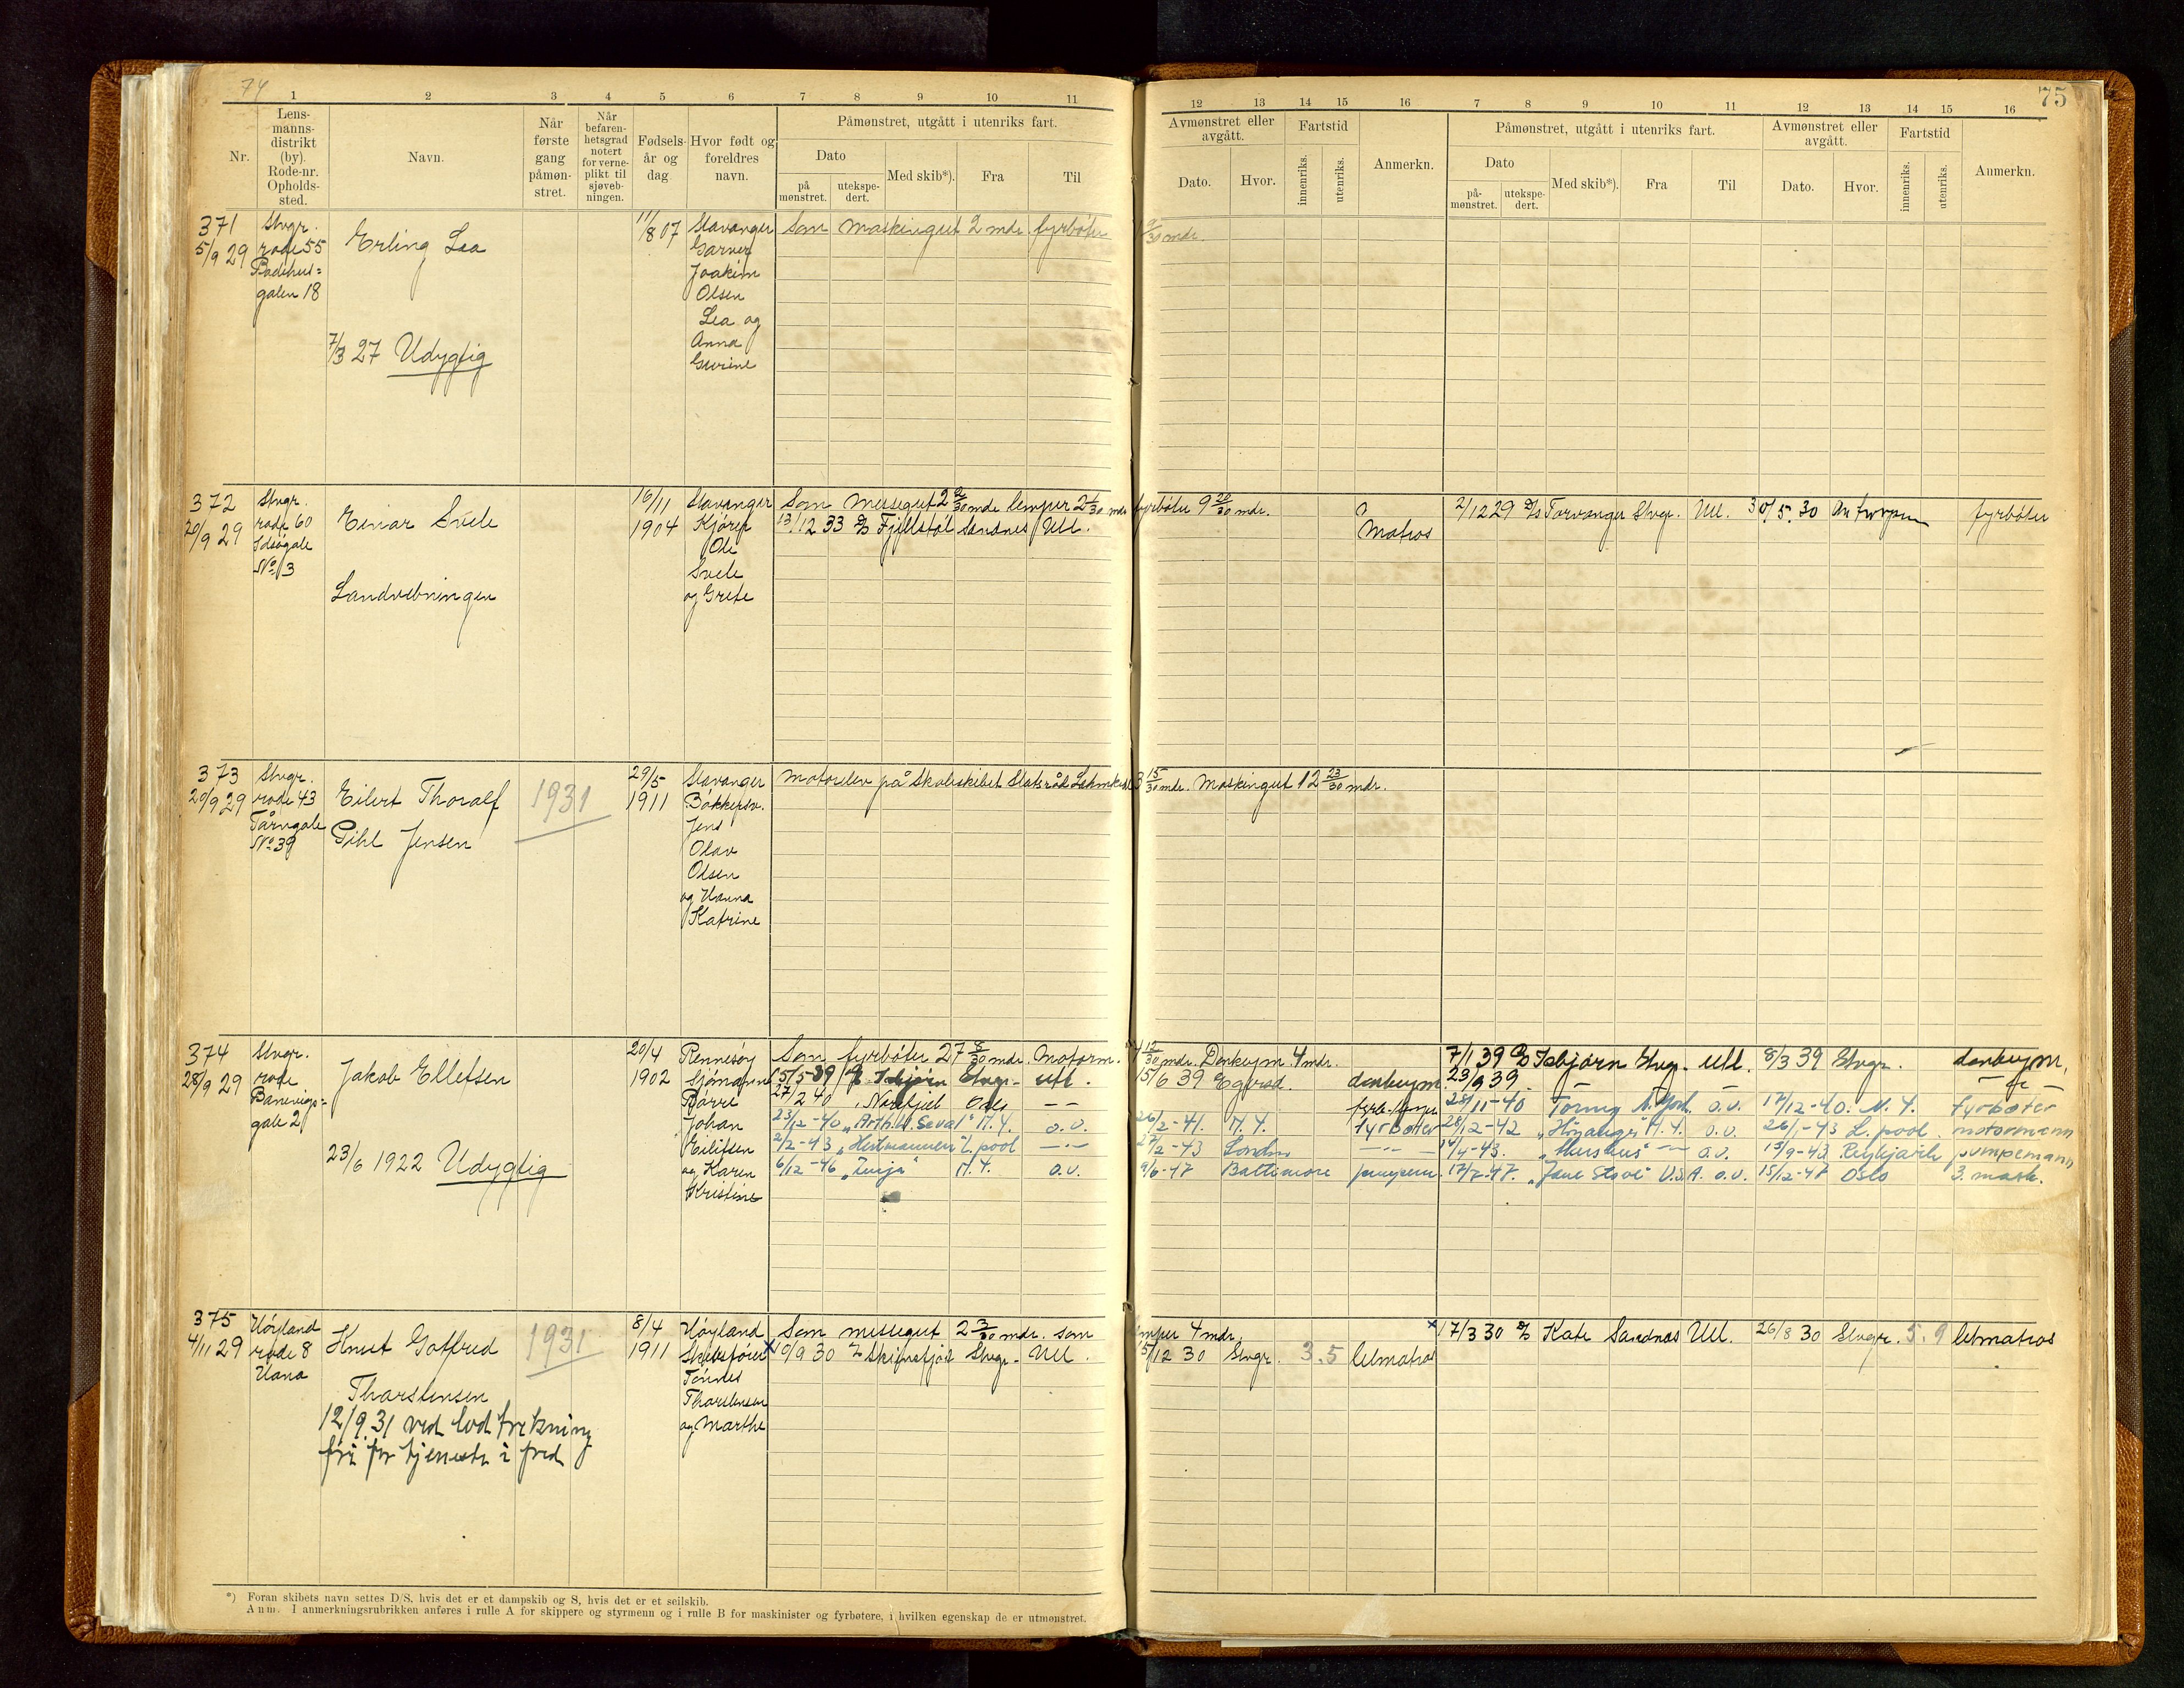 74
75
1 2 3 4 5 6 7 8 9 10 11
12 13 14 15 16 7 8 9 10 11 12 13 14 15 16
Nr.
Lens-
manns-
distrikt
(by).
Rode-nr.
Opholds-
sted.
Navn.
Når
første
gang
påmøn-
stret.
Når
befaren-
hetsgrad
notert
for verne-
plikt til
sjøveb-
ningen.
Fødsels-
år og
dag
Hvor født og
foreldres
navn.
Påmønstret, utgått i utenriks fart.
Dato
på
mønstret.
utekspe-
dert.
Med skib*).
Fra
Til
Avmønstret eller
avgått.
Dato.
Hvor.
Fartstid
innenriks.
utenriks.
Anmerkn.
Påmønstret, utgått i utenriks fart.
Dato
på-
mønstret.
utekspe-
dert.
Med skib*).
Fra
Til
Avmønstret eller
avgått.
Dato.
Hvor.
Fartstid
innenriks.
utenriks.
Anmerkn.
371
5/9 29
Stvgr.
rode 55
galen 18
Erling Lea
7/3 27 Udygtig
11/8 07
Stavanger
Garver
Joakim
Olsen
Lea og
Anna
Gurine
Som maskingut 2 mdr. fyrbøter
/30 mdr.
372
20/9 29
Stvgr.
rode 60
Idsøgale
No 3
Einar Svele
Landvebningen
16/11
1904
Stavanger
Ole
Svele
og Grete
Som messegut 2 /30 mdr lemper 2 /30 mdr fyrbøter 9 20/30 mdr.
13/12 33 D/S Fjellstøl Sandnes Utl.
Matros
2/12 29 D/S Torvanger Stvgr. Utl. 30/5. 30 Antwerpen fyrbøter
373
20/9 29
Stvgr.
rode 43
Tårngale
No 39
Eilert Thoralf
Pihl Jensen
1931
29/5
1911
Stavanger
Bakkersv.
Jens
Olav
Olsen
og Hanna
Katrine
motorelev på Skoleskibet Statsråd Lehmkuhl 3 15/30 mdr. Maskingut 12 23/30 mdr.
374
28/9 29
Stvgr.
rode
Banevigs=
gale 2
Jakob Elletsen
23/6 1922 Udygtig
20/4
1902
Rennesøy
Sjømann
Børre
Johan
Eilifsen
og Karen
Kristine
Som fyrbøter 27 8/30 mdr. Motorm. 12/30 mdr. Donkeym 4 mdr.
15/5-39 D/S Isbjørn Stvgr. utl. 15/6 39 donkeym.
27/2 40 Norefjell Oslo — —
23/12-40 N.Y. o.v. 26/2-41. N.Y. fyrbøter
2/2-43 L.pool 27/2-43 London
6/12-46 N.Y. o.v. 9/6-47 Baltimore
7/1 39 D/S Isbjørn Stvgr. Utl. 8/3 39 Stvgr. donkeym.
23/9 39.
25/11-40 Torny N. York. o.v. 17/12-40. N.Y. fyrbøter
28/12-42 "Høyanger" N.Y. o.v. 26/1-43 L.pool motormann
14/4-43. o.v. 15/9-43 pumpemann
17/7-47. U.S.A. o.v. 15/12-47 Oslo 3. mask.
375
4/11 29
Høyland
rode 8
Hana
Knut Gotfred
Tharstensen
1931
12/9.31 ved lodtrekning
fri for tjeneste i fred
8/4
1911
Høyland
Skibsfører
Tønnes
Tharstensen
og Marthe
Som messegut 2 3/30 mdr. som lemper 4 mdr.
x 10/9 30 Stvgr. Utl. 5/12 30 Stvgr. 3.5 letmatros
x 17/3 30 D/S Kate Sandnes Utl. 26/8 30 Stvgr. 5.9 letmatros
*) Foran skibets navn settes D/S. hvis det er et dampskib og S, hvis det er et seilskib.
Anm. I anmerkningsrubrikken anføres i rulle A for skippere og styrmenn og i rulle B for maskinister og fyrbøtere, i hvilken egenskap de er utmønstret.